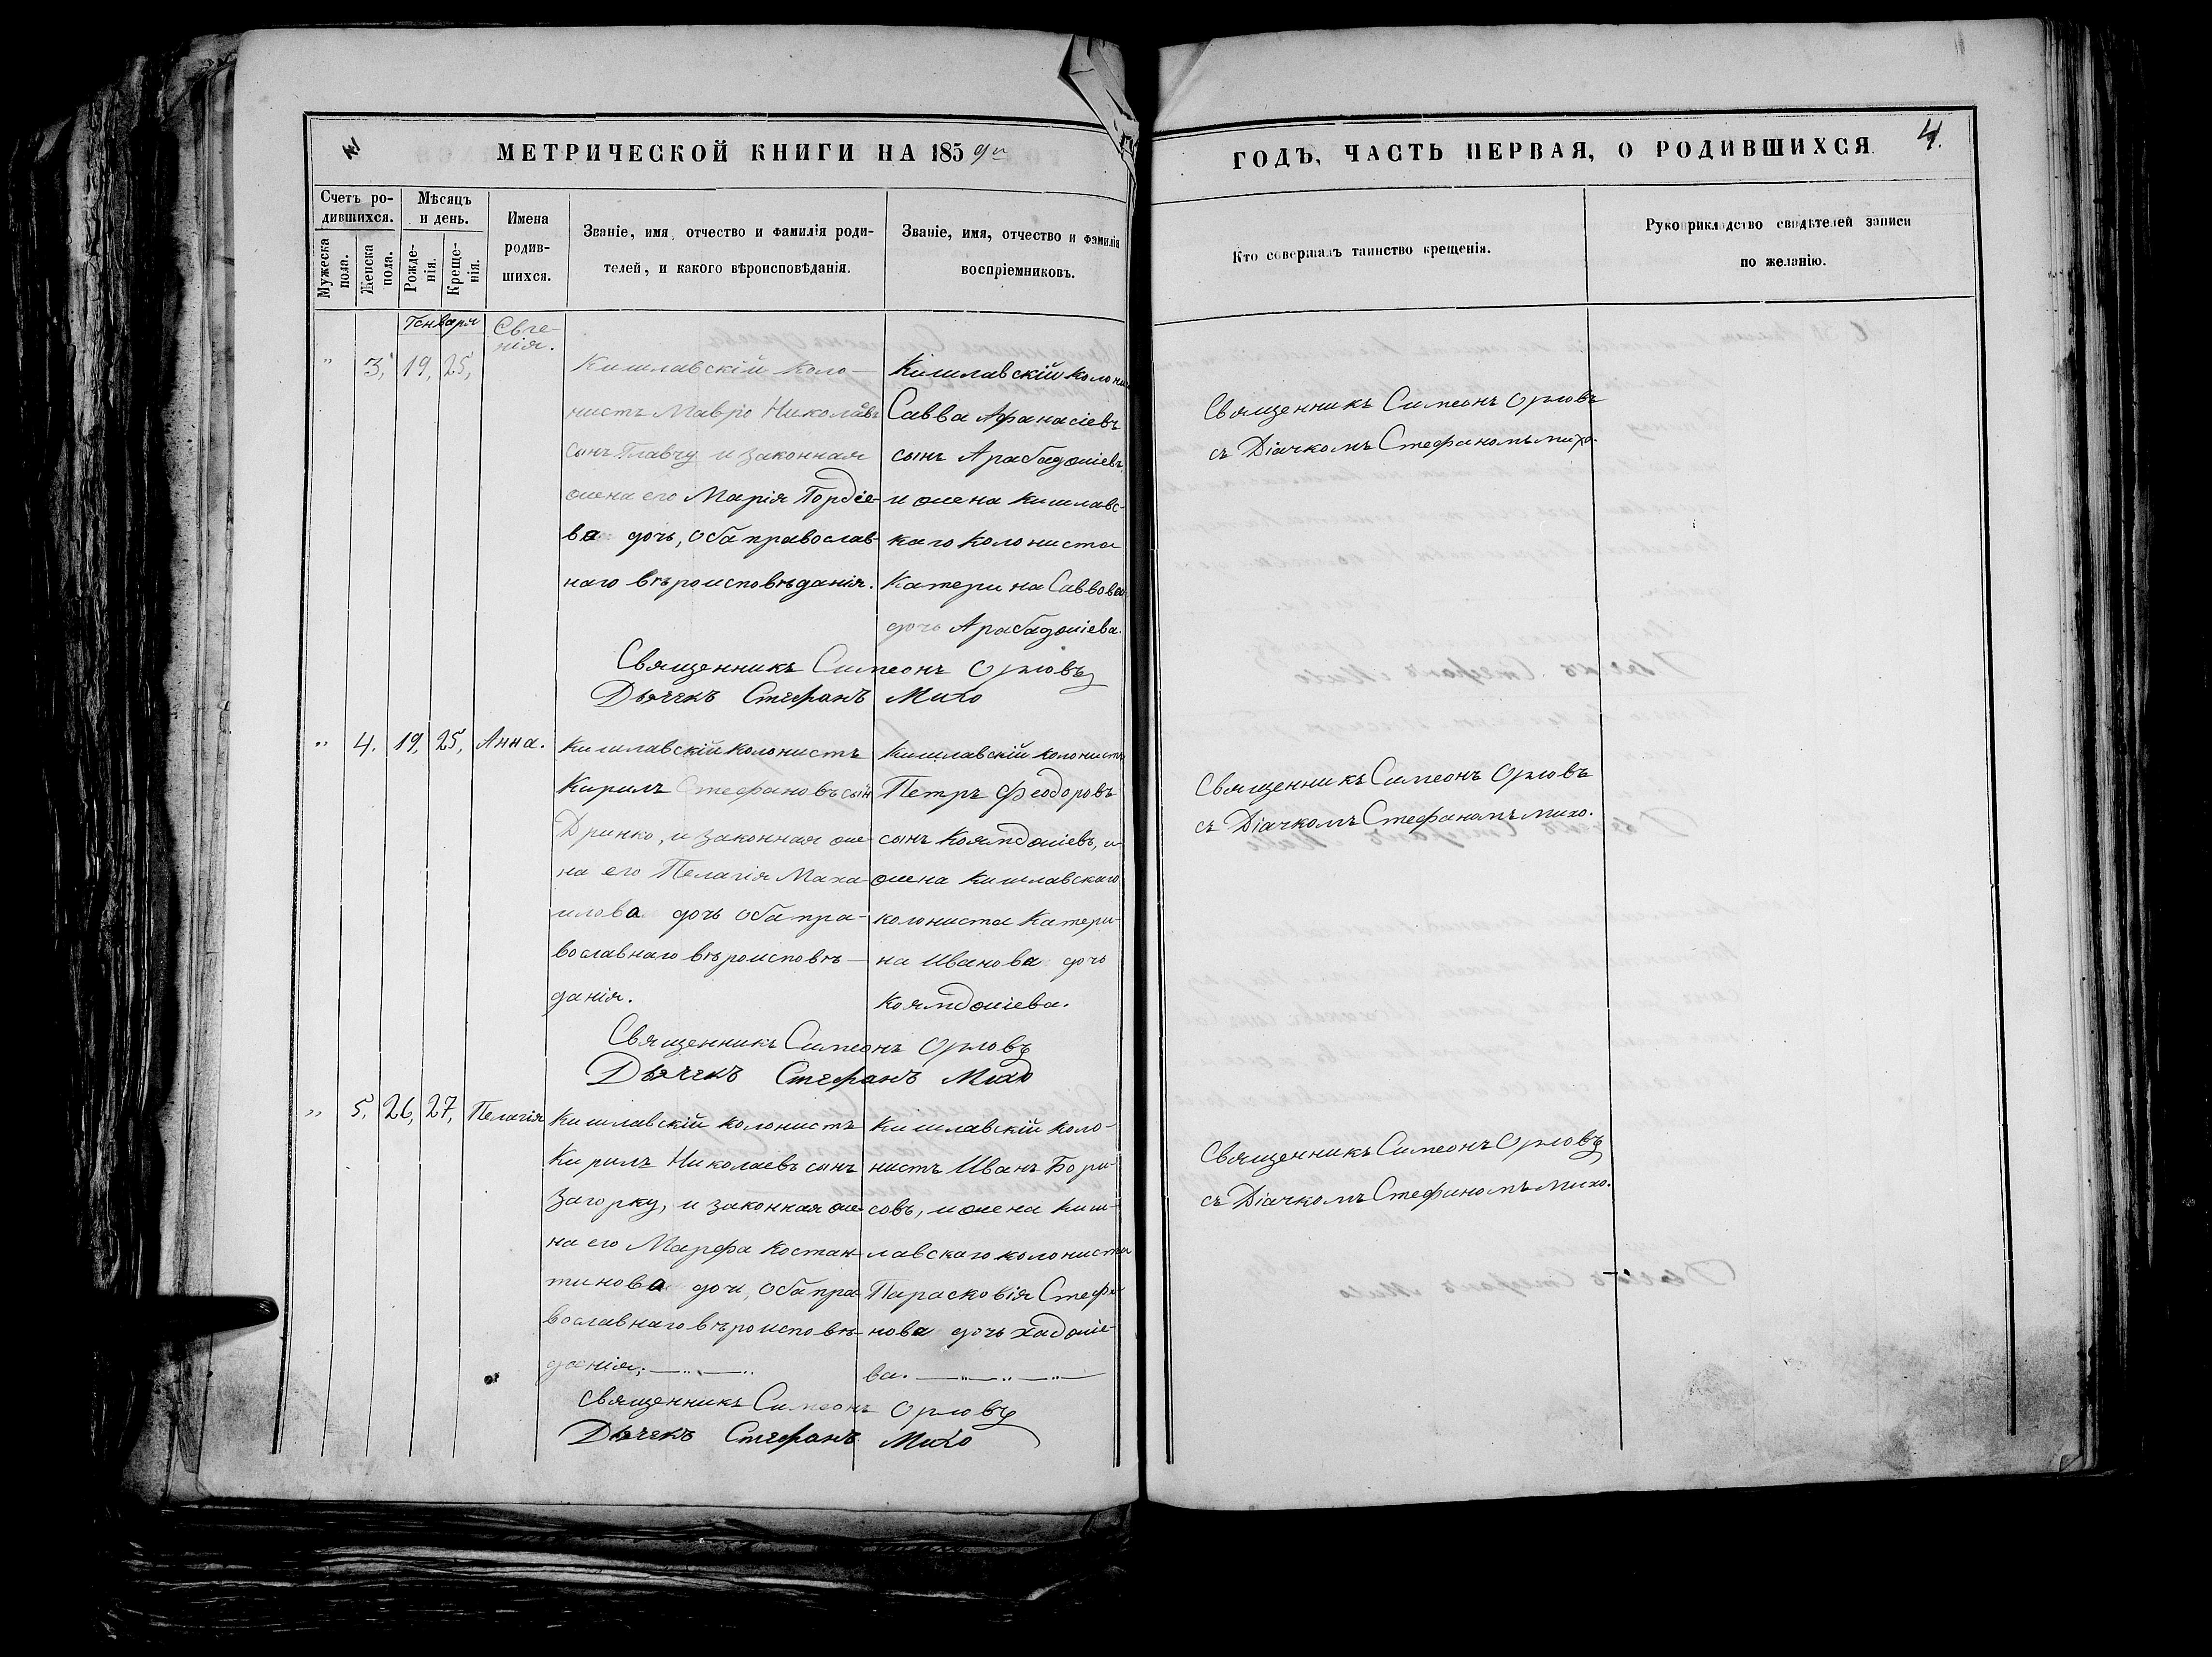 МЕТРИЧЕСКОЙ КНИГИ НА 1859й
ГОДЪ, ЧАСТЬ ПЕРВАЯ, О РОДИВШИХСЯ.
4.
Счетъ ро-
дившихся.
Мужеска
пола.
Женска
пола.
Мѣсяцъ
и день.
Рожде-
нія.
Креще-
нія.
Имена
родив-
шихся.
Званіе, имя, отчество и фамилія роди-
телей, и какого вѣроисповѣданія.
Званіе, имя, отчество и фамилія
воспріемниковъ.
Кто совершалъ таинство крещенія.
Рукоприкладство свидѣтелей записи
по желанію.
Генваря
" 3, 19, 25,
Евге-
нія.
Кишлавскій коло-
нистъ Мавро Николаевъ
сынъ Главчу и законная
жена его Марія Гордіе-
ва дочь, оба православ-
наго вѣроисповѣданія.
Кишлавскій колони
Савва Афанасіевъ
сынъ Арабаджіевъ,
и жена Кишлавс-
каго колониста
Катерина Саввова
дочь Арабаджіева.
Священникъ Симеонъ Орловъ
съ Діачкомъ Стефаномъ Михо.
Священникъ Симеонъ Орловъ
Дьячекъ Стефанъ Михо
" 4. 19, 25, Анна.
Кишлавскій колонистъ
Кирилъ Стефановъ сын
Дринко, и законная же-
на его Пелагія Миха-
илова дочь оба пра-
вославнаго вѣроисповѣ-
данія.
Кишлавскій колонистъ
Петръ Феодоровъ
сынъ Коямджіевъ, и
жена Кишлавскаго
колониста Катери-
на Иванова дочь
Коямджіева.
Священникъ Симеонъ Орловъ
съ Діачкомъ Стефаномъ Михо.
Священникъ Симеонъ Орловъ
Дьячекъ Стефанъ Михо
" 5. 26, 27, Пелагія
Кишлавскій колонистъ
Кирилъ Николаевъ сынъ
Загорку, и законная же-
на его Марфа Костан-
тинова дочь, оба пра-
вославнаго вѣроисповѣ-
данія;
Кишлавскій коло-
нистъ Иванъ Бори-
совъ, и жена Киш-
лавскаго колониста
Парасковія Стефа-
нова дочь Хаджіе-
ва.
Священникъ Симеонъ Орловъ
съ Діачкомъ Стефаномъ Михо.
Священникъ Симеонъ Орловъ
Дьячекъ Стефанъ Михо